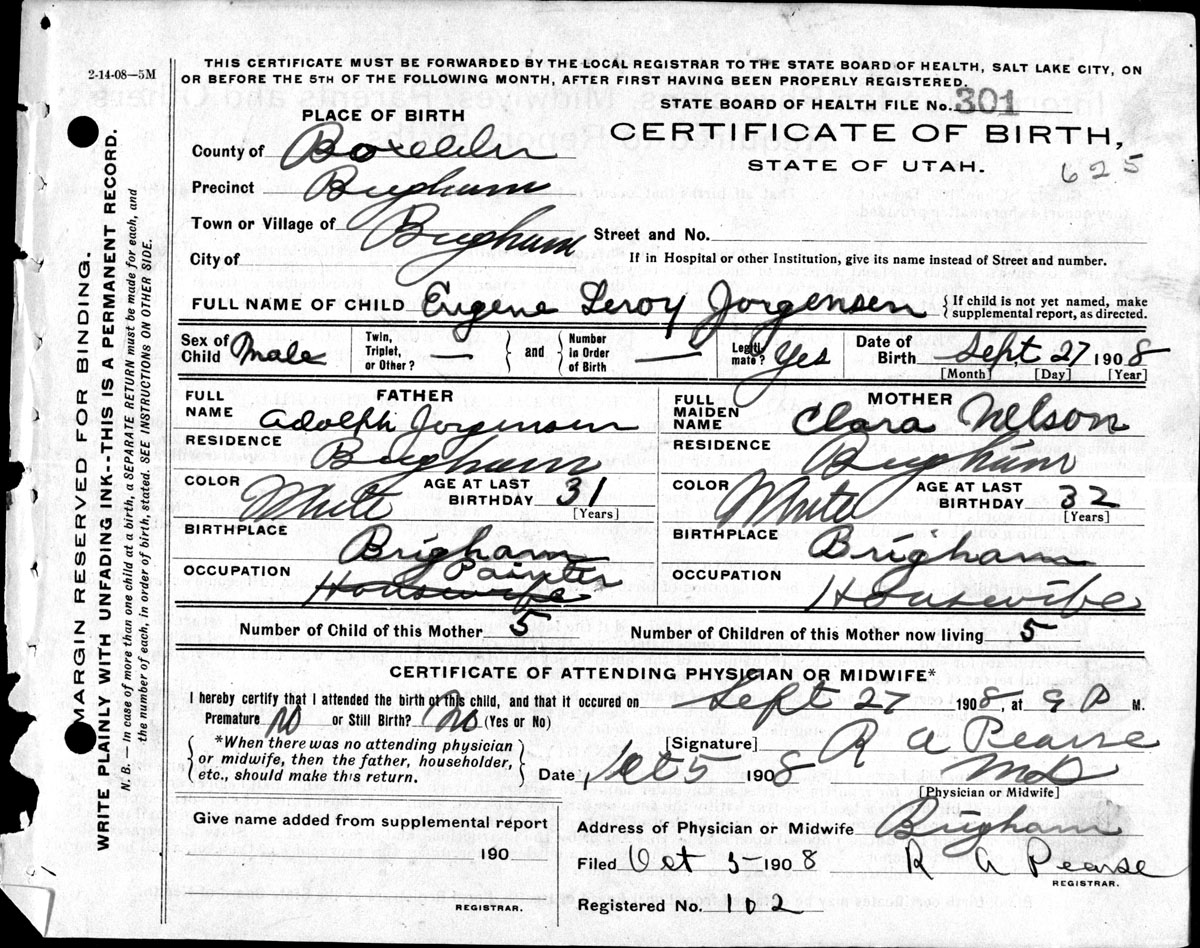 2-14-08—5M
THIS CERTIFICATE MUST BE FORWARDED BY THE LOCAL REGISTRAR TO THE STATE BOARD OF HEALTH, SALT LAKE CITY, ON
OR BEFORE THE 5TH OF THE FOLLOWING MONTH, AFTER FIRST HAVING BEEN PROPERLY REGISTERED.
STATE BOARD OF HEALTH FILE No. 301
PLACE OF BIRTH
CERTIFICATE OF BIRTH,
STATE OF UTAH.
625
County of Boxelder
Precinct Brigham
Town or Village of Brigham Street and No.
City of If in Hospital or other Institution, give its name instead of Street and number.
FULL NAME OF CHILD Eugene Leroy Jorgensen { If child is not yet named, make supplemental report, as directed.
Sex of Child Male Twin, Triplet, or Other? — and Number in Order of Birth — Legitimate? Yes Date of Birth Sept. 27 1908
[Month] [Day] [Year]
FATHER
FULL NAME Adolph Jorgensen
RESIDENCE Brigham
COLOR White AGE AT LAST BIRTHDAY 31 [Years]
BIRTHPLACE Brigham
OCCUPATION Painter
Housewife
MOTHER
FULL MAIDEN NAME Clara Nelson
RESIDENCE Brigham
COLOR White AGE AT LAST BIRTHDAY 32 [Years]
BIRTHPLACE Brigham
OCCUPATION Housewife
Number of Child of this Mother 5 Number of Children of this Mother now living 5
CERTIFICATE OF ATTENDING PHYSICIAN OR MIDWIFE*
I hereby certify that I attended the birth of this child, and that it occured on Sept 27 1908, at 9 P M.
Premature No or Still Birth? No (Yes or No)
*When there was no attending physician
or midwife, then the father, householder,
etc., should make this return.
[Signature] R A Pearse
MD
[Physician or Midwife]
Date Oct 5 1908
Give name added from supplemental report
190
REGISTRAR.
Address of Physician or Midwife Brigham
Filed Oct 5 1908 R A Pearse
REGISTRAR.
Registered No. 102
MARGIN RESERVED FOR BINDING.
WRITE PLAINLY WITH UNFADING INK---THIS IS A PERMANENT RECORD.
N. B.— In case of more than one child at a birth, a SEPARATE RETURN must be made for each, and
the number of each, in order of birth, stated. SEE INSTRUCTIONS ON OTHER SIDE.